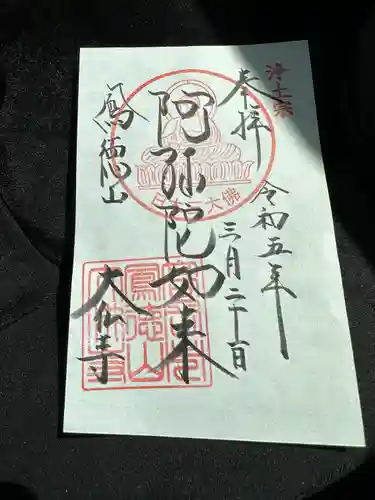 浄土宗
奉拝
令和五年
三月二十一日
阿弥陀如来
鳳徳山
大仏寺
大佛
鳳徳山